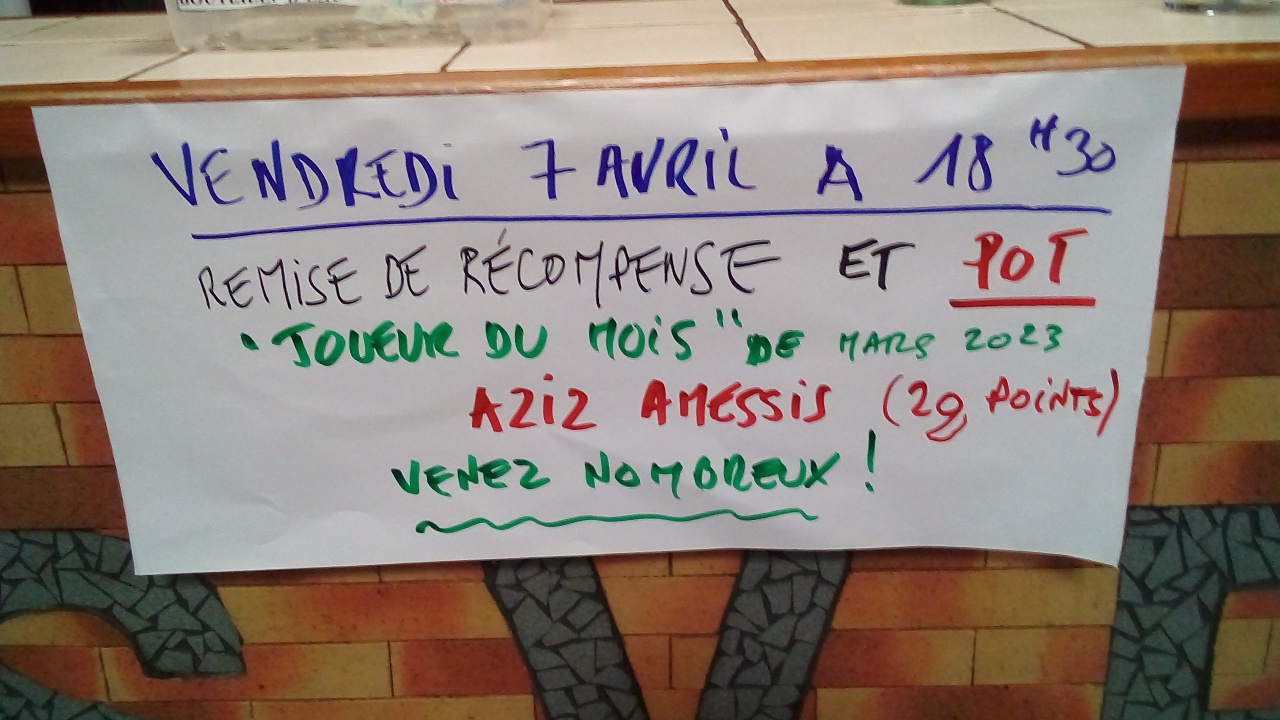 VENDREDI 7 AVRIL A 18 H 30
REMISE DE RÉCOMPENSE ET POT
"JOUEUR DU MOIS" DE MARS 2023
AZIZ AMESSIS (29 POINTS)
VENEZ NOMBREUX !